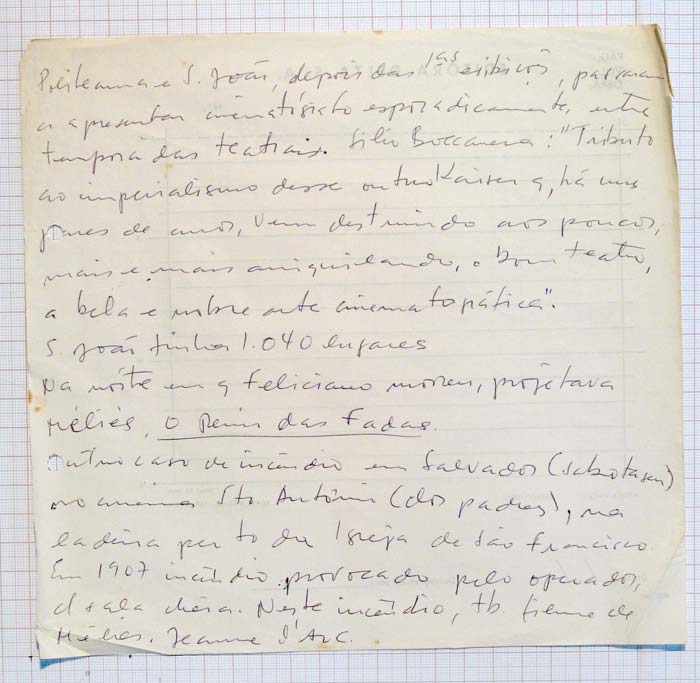 Politeama e S. João, depois das 1as exibições, passaram
a apresentar cinematógrafo esporadicamente, entre
temporadas teatrais. Silio Boccanera: "Tributo
ao imperialismo desse outro Kaiser q, há uns
pares de anos, vem destruindo aos poucos,
mais e mais aniquilando, o bom teatro,
a bela e nobre arte cinematográfica".
S. João tinha 1.040 lugares
Na noite em q Feliciano morreu, projetava
Méliès, O Reino das Fadas.
Outro caso de incêndio em Salvador (sabotagem)
no cinema Sto Antônio (dos padres), na
ladeira perto da Igreja de São Francisco.
Em 1907 incêndio provocado pelo operador,
sala cheia. Neste incêndio, tb. filme de
Méliès. Jeanne d'Arc.